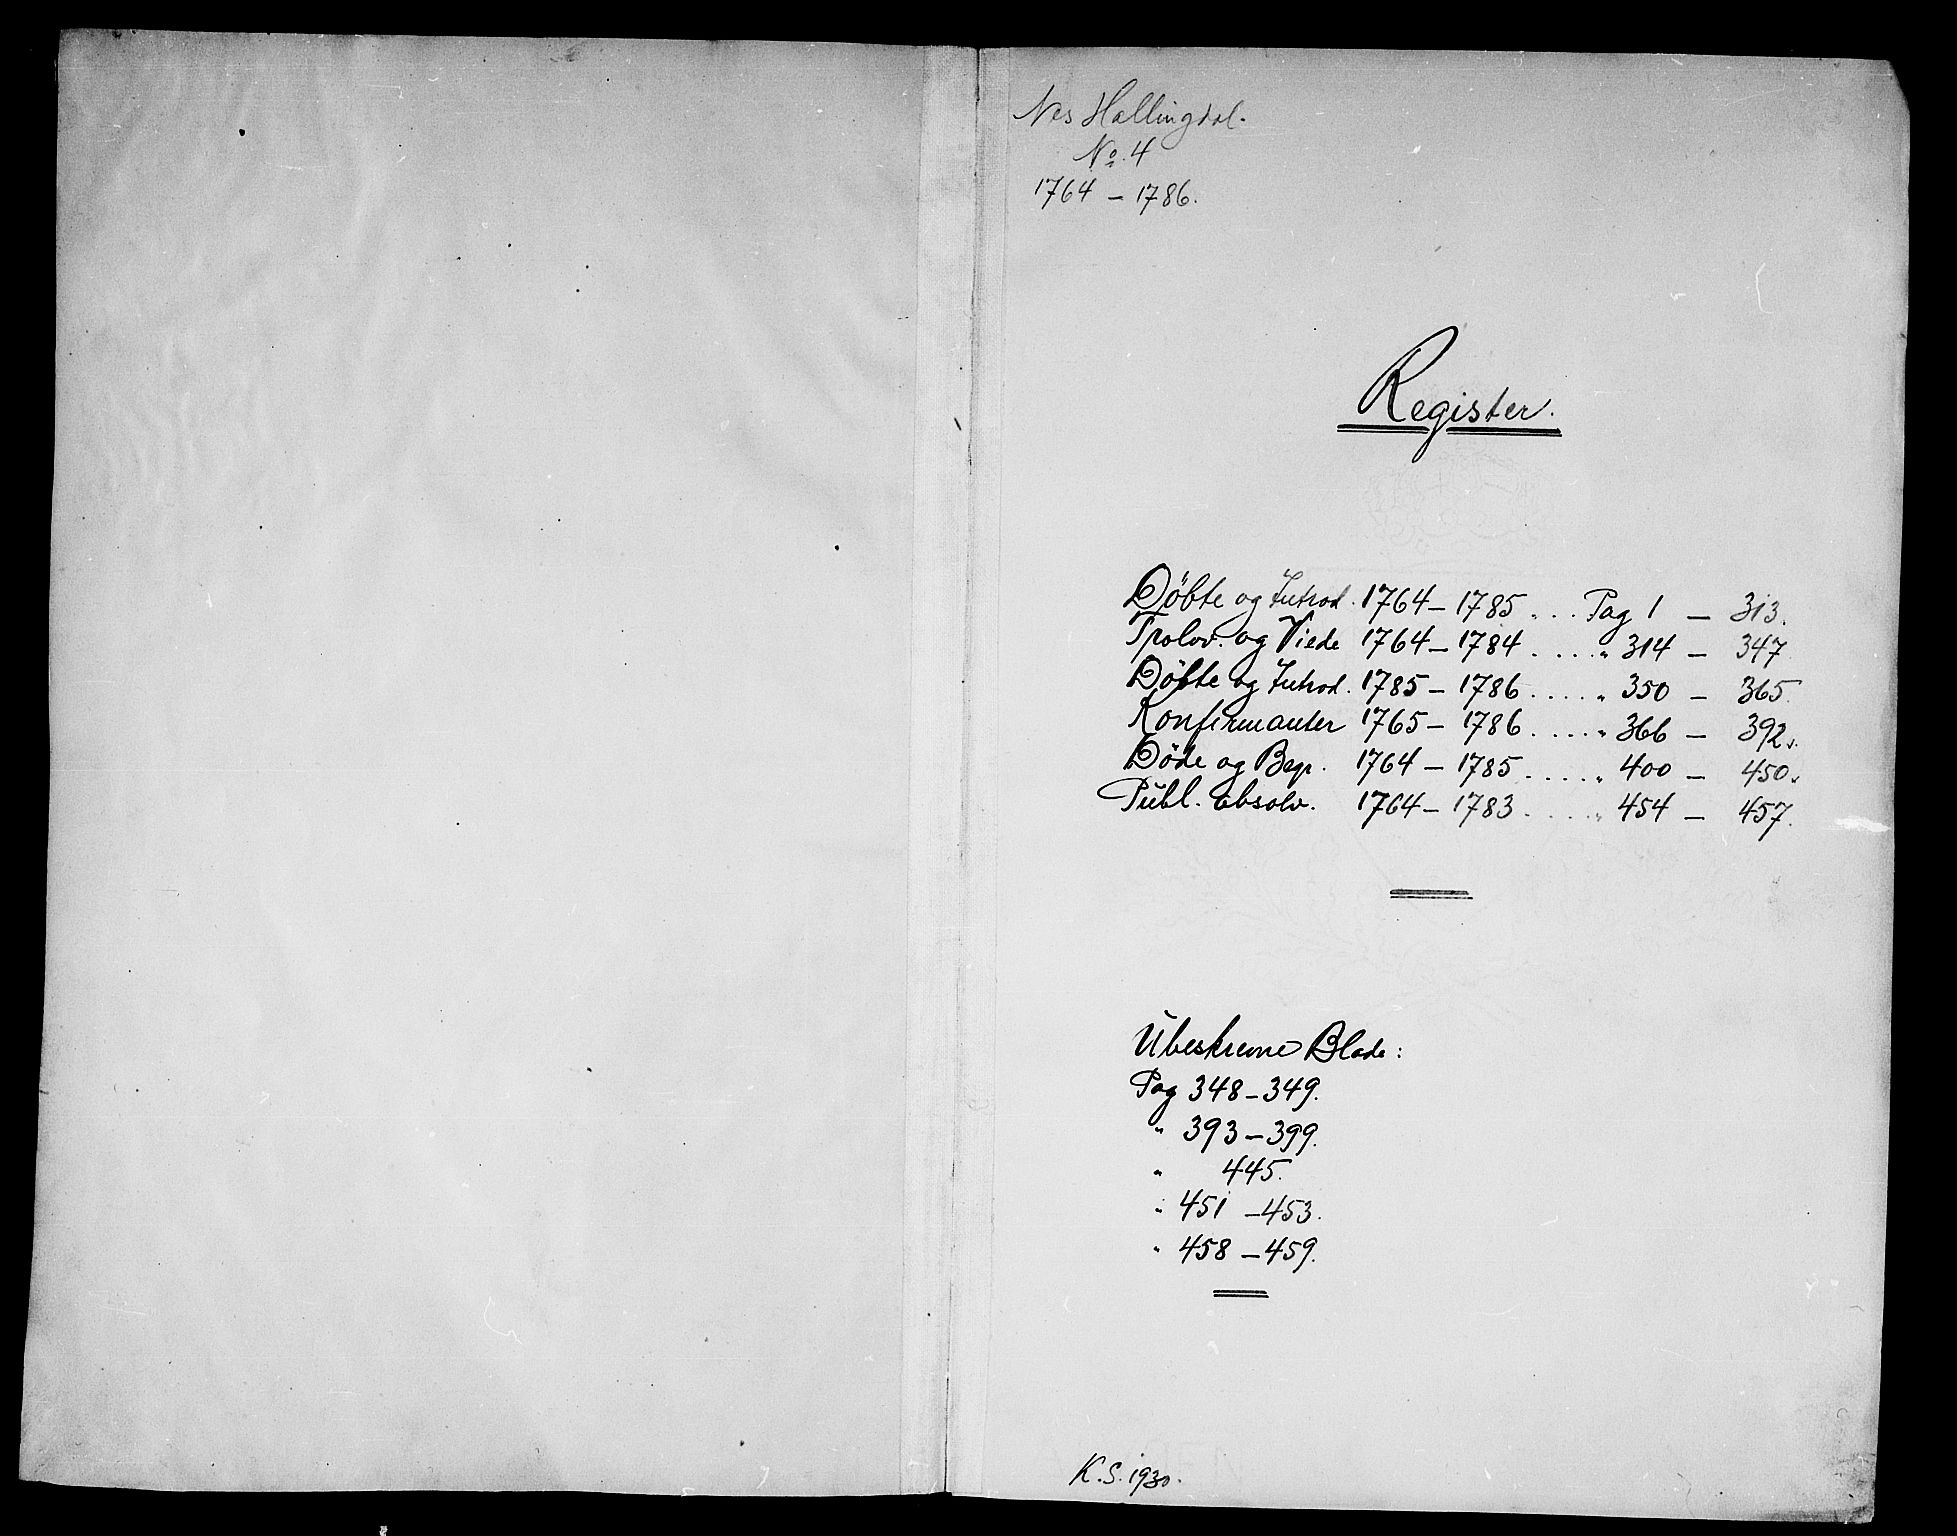 Nes Hallingdal.
No. 4
1764 – 1786.
Register.
Döbte og Introd. 1764 – 1785 . . . Pag 1 – 313.
Trolov. og Viede 1764 – 1784 . . . . „ 314 – 347
Döbte og Introd. 1785 – 1786 . . . . . „ 350 – 365.
Konfirmanter 1765 – 1786 . . . . . „ 366 – 392.
Döde og Begr. 1764 – 1785 . . . . . „ 400 – 450.
Publ. absolv. 1764 – 1783 . . . . . „ 454 – 457.
Ubeskrevne Blade:
Pag 348 – 349.
„ 393 – 399.
„ 445.
„ 451 – 453.
„ 458 – 459.
K.S. 1930.